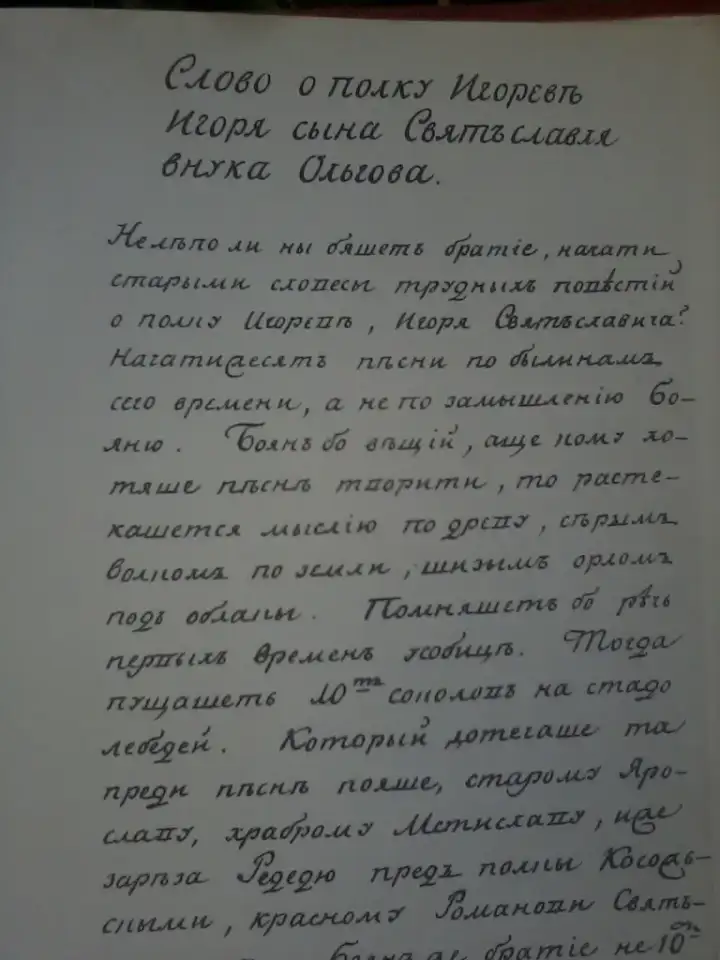 Слово о полку Игоревѣ
Игоря сына Святъславля
внука Ольгова.
Нелѣпо ли ны бяшетъ братіе, начати
старыми словесы трудныхъ повѣстій
о полку Игоревѣ, Игоря Святъславича?
Начатижесятъ пѣсни по былинамъ
сего времени, а не по замышленію Бо-
яню. Боянъ бо вѣщій, аще кому хо-
тяше пѣснь творити, то расте-
кашется мыслію по древу, сѣрымъ
волкомъ по земли, шизымъ орломъ
подъ облакы. Помняшеть бо рѣчь
первыхъ временъ усобицѣ. Тогда
пущашеть 10ть соколовь на стадо
лебедей. Который дотечаше та
преди пѣснь пояше, старому Яро-
славу, храброму Мстиславу, иже
зарѣза Редедю предъ полкы Косожь-
скыми, красному Романови Святъ-
братіе не 10ть